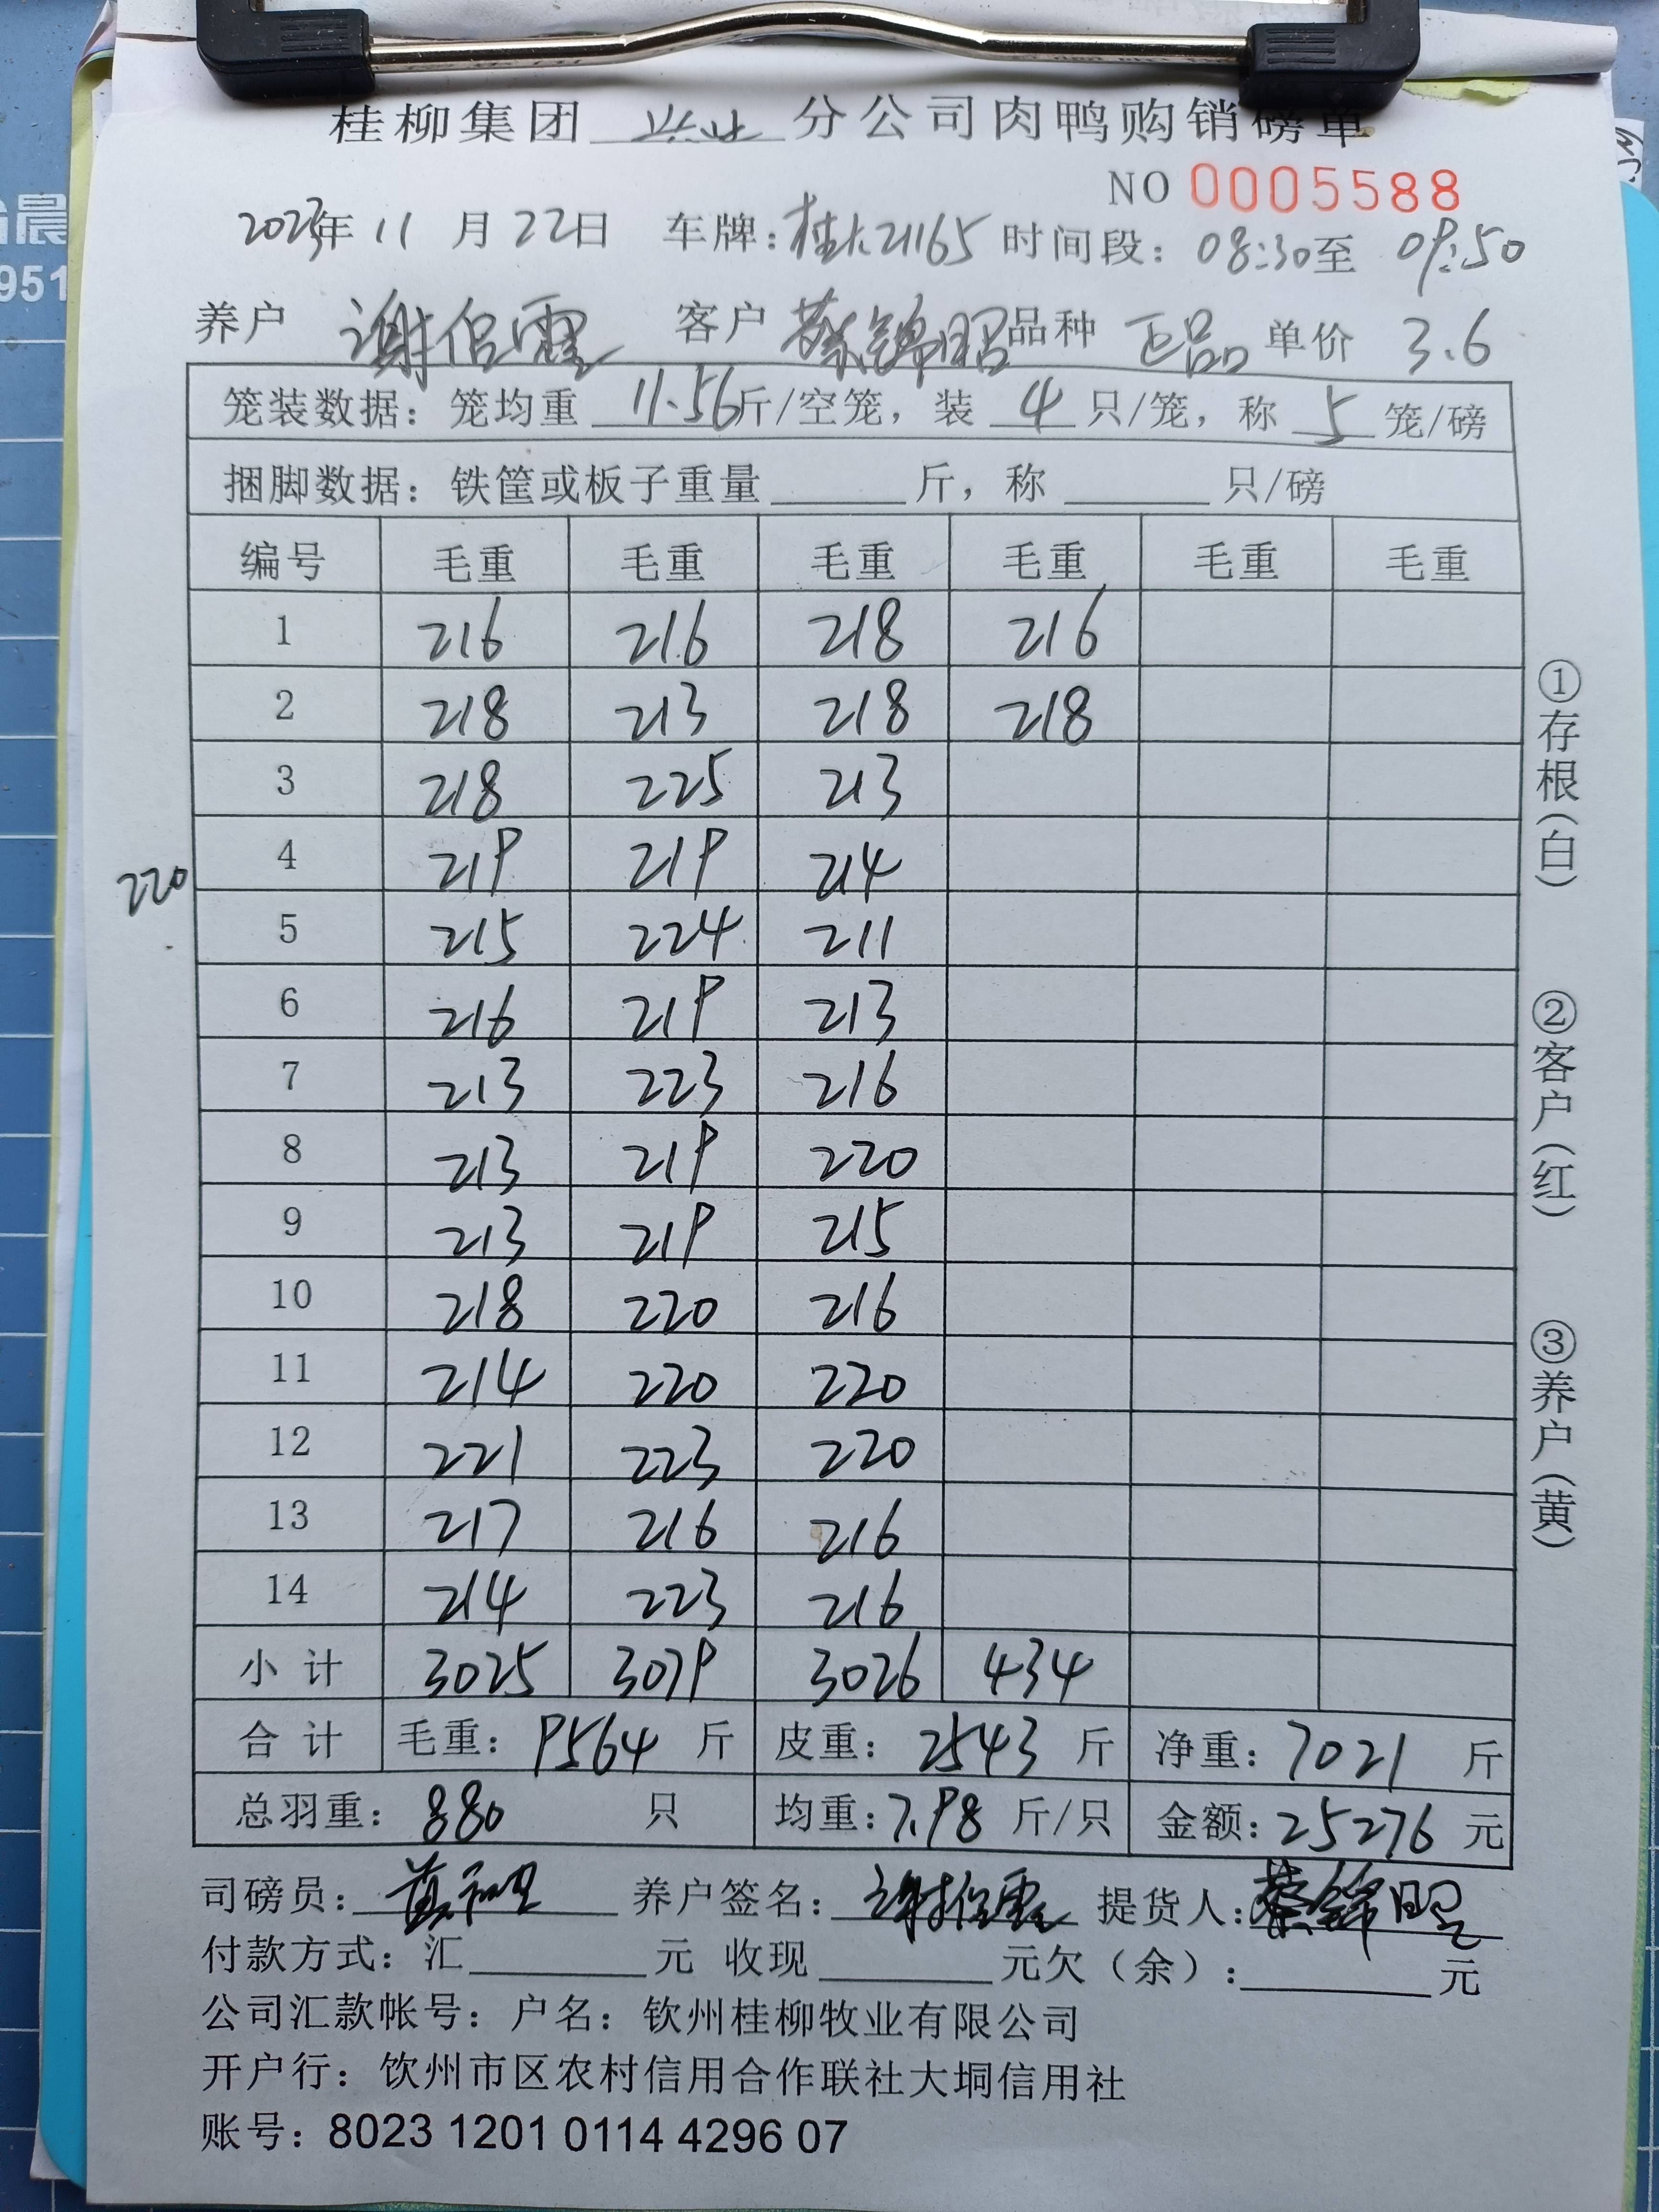 桂柳集团 兴业 分公司肉鸭购销磅单
NO 0005588
2023年 11 月 22日 车牌：桂K21165 时间段：08:30至 09:50
养户 谢侣霞 客户 蔡锦昭 品种 正品 单价 3.6
笼装数据：笼均重 11.56斤/空笼，装 4 只/笼，称 5 笼/磅
捆脚数据：铁筐或板子重量 斤，称 只/磅
编号 毛重 毛重 毛重 毛重 毛重 毛重
1 216 216 218 216
2 218 213 218 218
3 218 225 213
4 219 219 214
220
5 215 224 211
6 216 219 213
7 213 223 216
8 213 219 220
9 213 219 215
10 218 220 216
11 214 220 220
12 221 223 220
13 217 216 216
14 214 223 216
小计 3025 3079 3026 434
合计 毛重：9564 斤 皮重：2543 斤 净重：7021 斤
总羽重：880 只 均重：7.98 斤/只 金额：25276 元
司磅员： 养户签名：谢侣霞 提货人：蔡锦昭
付款方式：汇 元 收现 元欠（余）： 元
公司汇款帐号：户名：钦州桂柳牧业有限公司
开户行：钦州市区农村信用合作联社大垌信用社
账号：8023 1201 0114 4296 07
①存根（白） ②客户（红） ③养户（黄）
晨
951